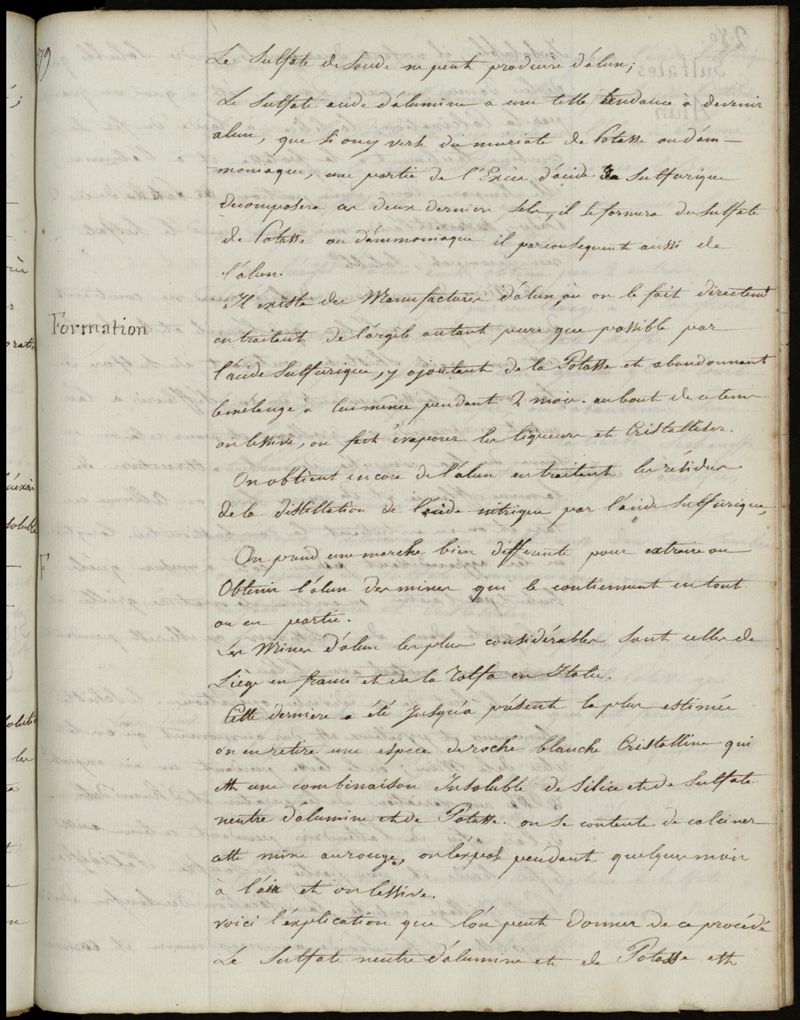 79
Le Sulfate de Soude ne peut produire d'alun;
Le Sulfate acide d'alumine a une telle tendance a devenir
alun, que si on y verse du muriate de Potasse ou d'am-
moniaque, une partie de l'Excès d'acide Sulfurique
decomposera ces deux derniers sels, il se formera du Sulfate
de Potasse ou d'ammoniaque il par consequent aussi de
l'alun.
Formation
Il existe des Manufactures d'alun, où on le fait directemt
en traitant de l'argile autant pure que possible par
l'acide Sulfurique, y ajoutant de la Potasse et abandonnant
le mélange à lui même pendant 2 mois. au bout de ce tems
on lessive, on fait évaporer les liqueurs et Cristalliser.
On obtient encore de l'alun en traitant les résidus
de la distillation de l'acide nitrique par l'acide Sulfurique,
On prend une marche bien differente pour extraire ou
Obtenir l'alun des mines qui le contiennent en tout
ou en partie.
Les Mines d'alun les plus considérables sont celles de
Liège en france et de la Tolfa en Italie.
Cette derniere a été Jusqu'a présent la plus estimée
on en retire une espece de roche blanche Cristalline qui
est une combinaison Insoluble de Silice et de Sulfate
neutre d'alumine et de Potasse. on se contente de calciner
cette mine au rouge, on l'expose pendant quelques mois
à l'air et on lessive.
voici l'explication que l'on peut donner de ce procédé
Le Sulfate neutre d'alumine et de Potasse est